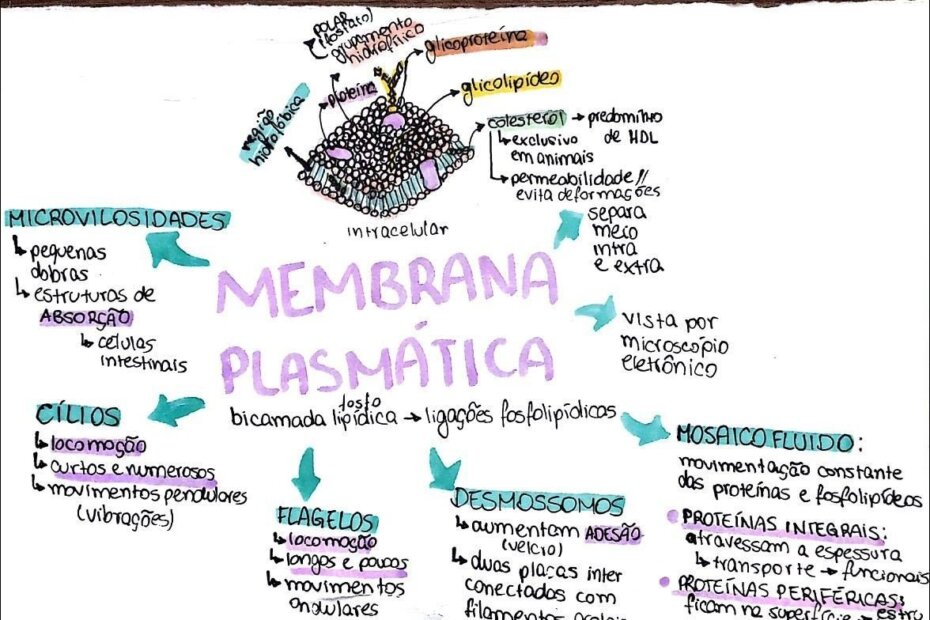 POLAR
(fosfato)
grupamento
hidrofílico
glicoproteína
proteína
glicolipídeo
região
hidrofóbica
colesterol → predomínio
de HDL
↳ exclusivo
em animais
↳ permeabilidade//
evita deformações
intracelular
separa
meio
intra
e extra
MICROVILOSIDADES
↳ pequenas
dobras
↳ estruturas de
ABSORÇÃO
↳ células
intestinais
MEMBRANA
PLASMÁTICA
vista por
microscópio
eletrônico
fosfo
bicamada lipídica → ligações fosfolipídicas
CÍLIOS
↳ locomoção
↳ curtos e numerosos
↳ movimentos pendulares
(vibrações)
FLAGELOS
↳ locomoção
↳ longos e poucos
↳ movimentos
ondulares
DESMOSSOMOS
↳ aumentam ADESÃO
(velcro)
↳ duas placas inter
conectadas com
filamentos
MOSAICO FLUIDO:
movimentação constante
das proteínas e fosfolipídeos
• PROTEÍNAS INTEGRAIS:
atravessam a espessura
↳ transporte → funcionais
• PROTEÍNAS PERIFÉRICAS:
ficam na superfície → estru